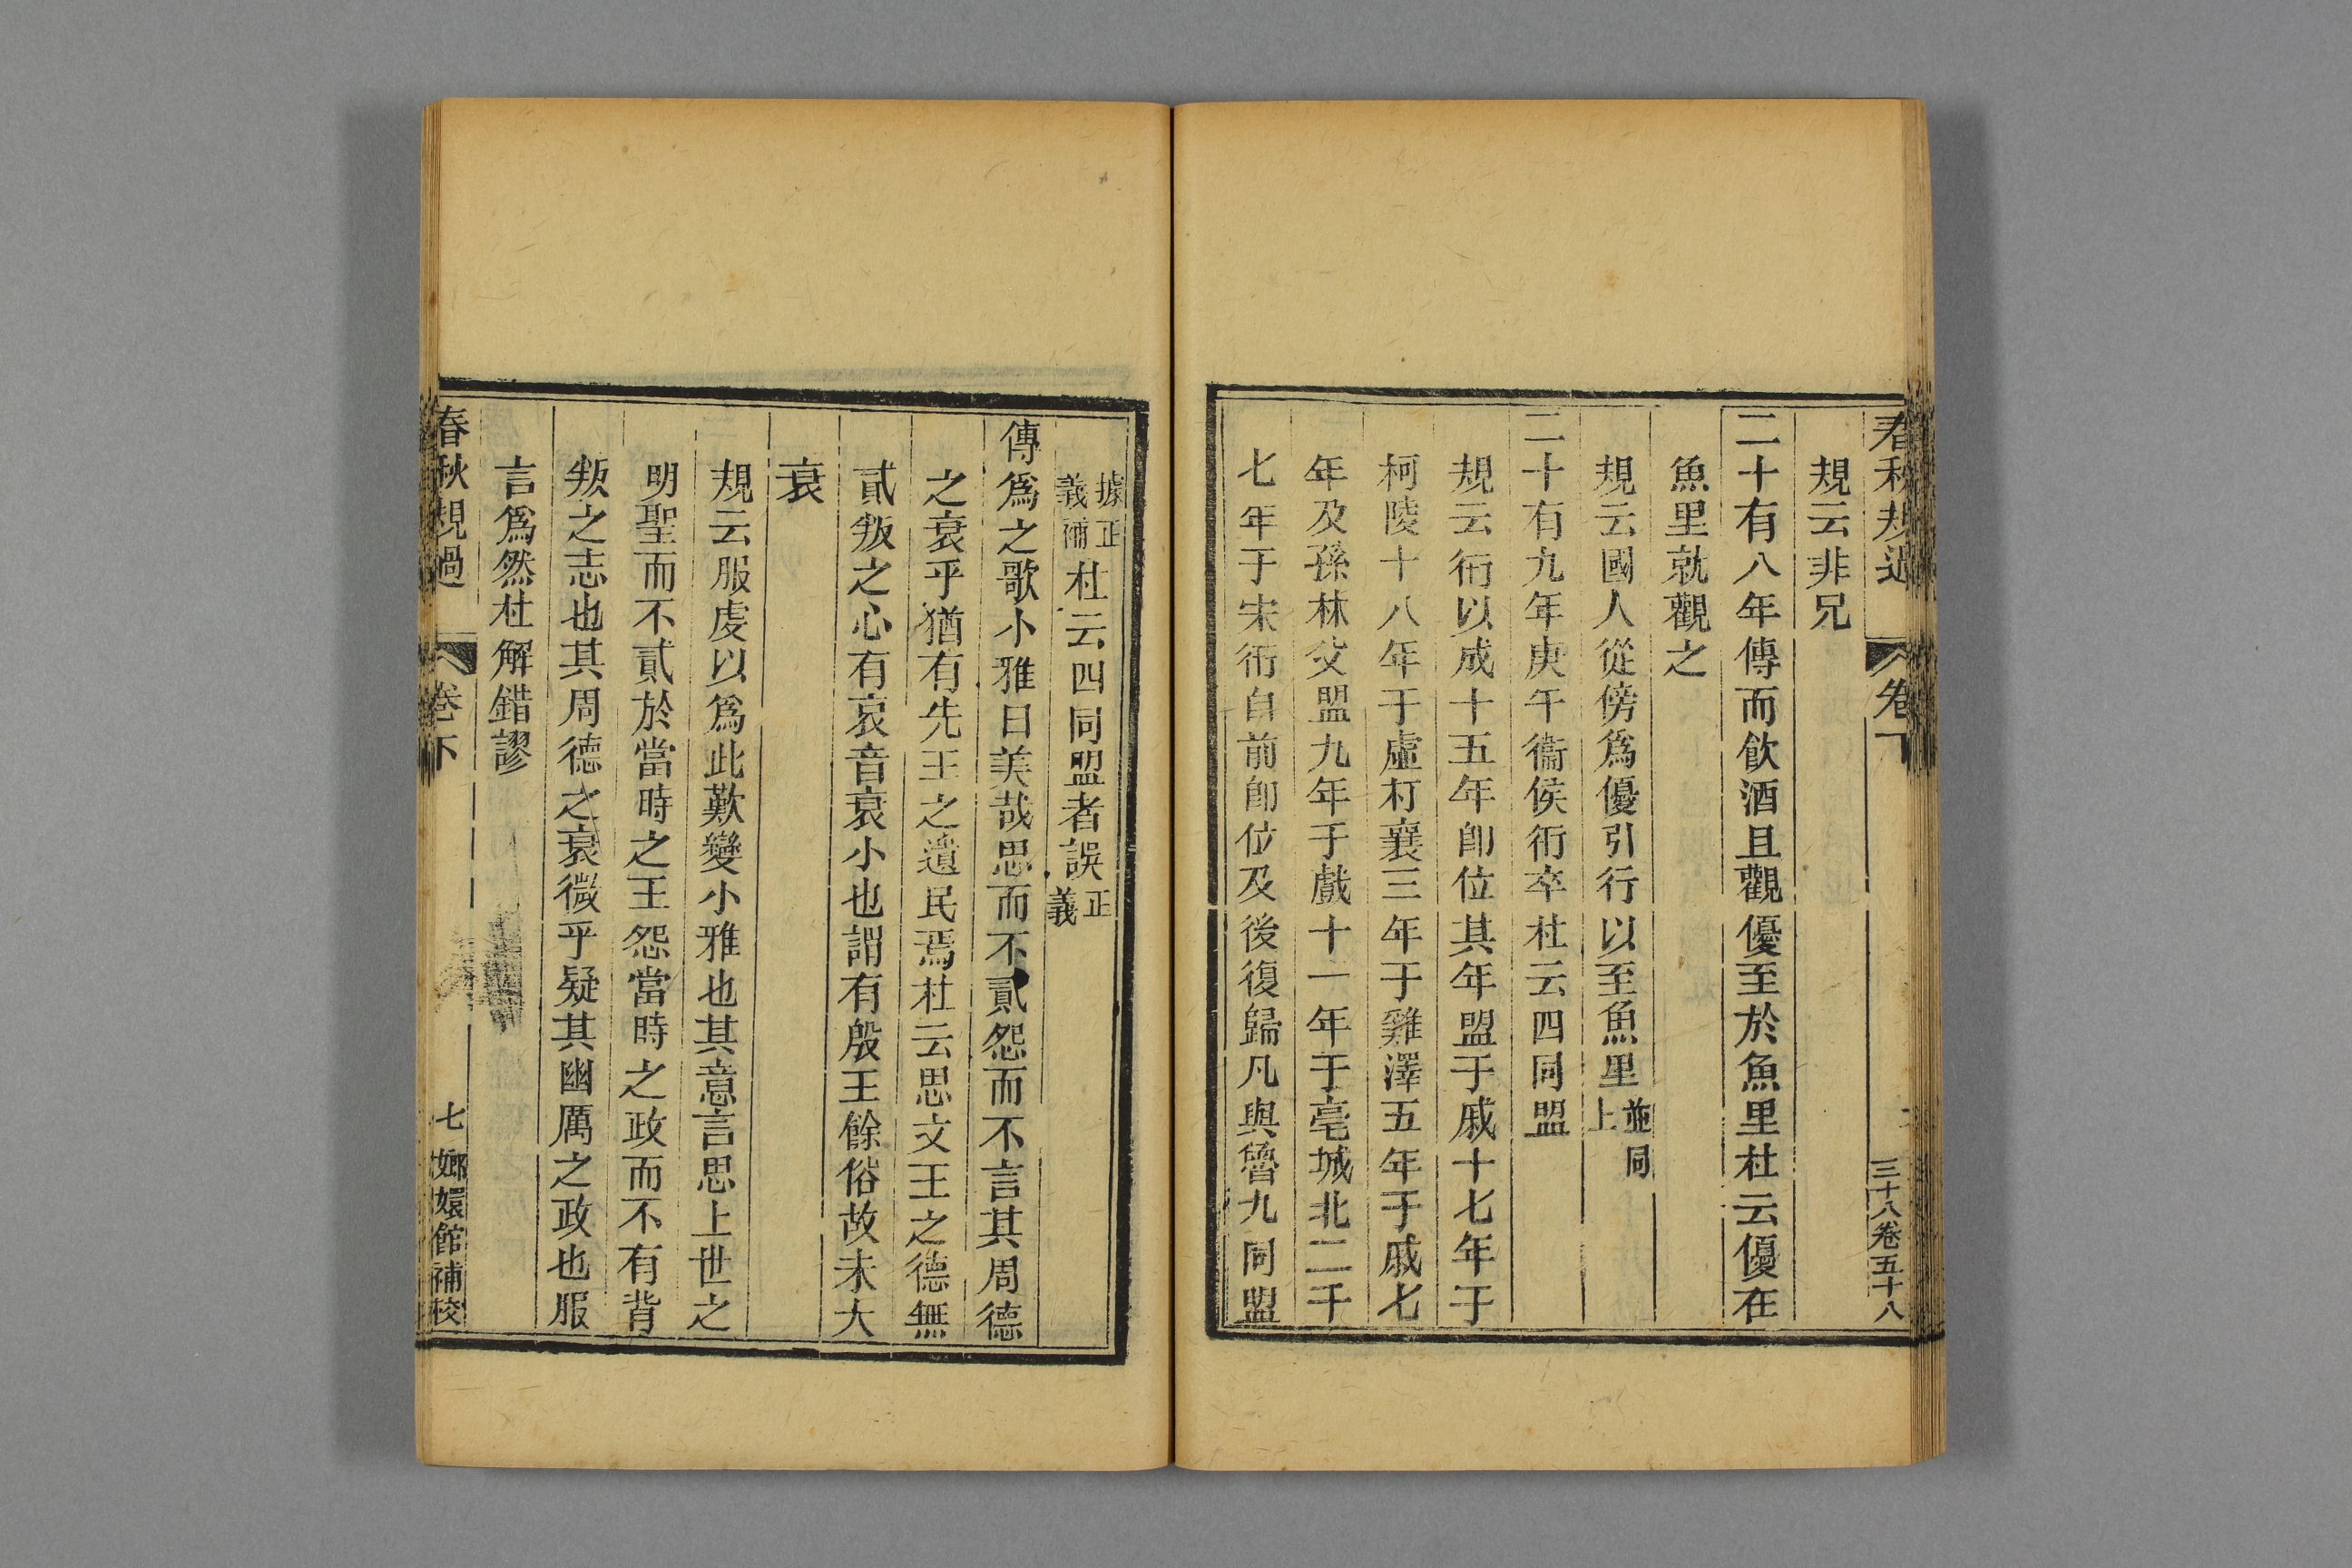 春秋規過 卷下 三十八卷五十八
規云非兄
二十有八年傳而飲酒且觀優至於魚里杜云優在
魚里就觀之
規云國人從傍爲優引行以至魚里並同上
二十有九年庚午衞侯衎卒杜云四同盟
規云衎以成十五年卽位其年盟于戚十七年于
柯陵十八年于虛朾襄三年于雞澤五年于戚七
年及孫林父盟九年于戲十一年于亳城北二十
七年于宋衎自前卽位及後復歸凡與魯九同盟
據正義補杜云四同盟者誤正義
傳爲之歌小雅曰美哉思而不貳怨而不言其周德
之衰乎猶有先王之遺民焉杜云思文王之德無
貳叛之心有哀音衰小也謂有殷王餘俗故未大
衰
規云服虔以爲此歎變小雅也其意言思上世之
明聖而不貳於當時之王怨當時之政而不有背
叛之志也其周德之衰微乎疑其幽厲之政也服
言爲然杜解錯謬
春秋規過 卷下 七 嫏嬛館補校